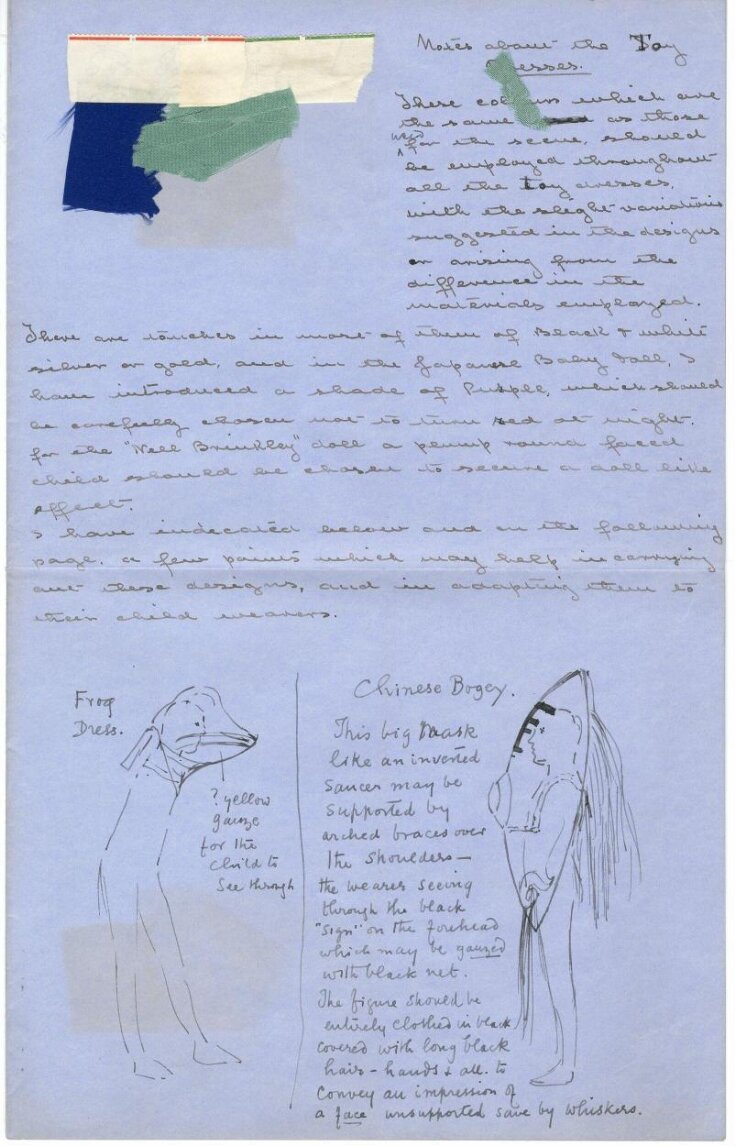 Notes about the Toy
Dresses.
These colours which are
the same as those
used
for the scene, should
be employed throughout
all the Toy dresses,
with the slight variations
suggested in the designs
or arising from the
difference in the
materials employed.
There are touches in most of them of Black & white
silver or gold, and in the Japanese Baby doll, I
have introduced a shade of Purple, which should
be carefully chosen not to turn red at night.
for the "Nell Brinkley" doll a plump round faced
child should be chosen to secure a doll like
effect.
I have indecated below and on the following
page, a few points which may help in carrying
out these designs, and in adapting them to
their child wearers.
Frog
Dress.
? yellow
gauze
for the
child to
see through
Chinese Bogey.
This big Mask
like an inverted
saucer may be
supported by
arched braces over
the shoulders —
the wearer seeing
through the black
"sign" on the forehead
which may be gauzed
with black net.
The figure should be
entirely clothed in black
covered with long black
hairs - hands & all. to
convey an impression of
a face unsupported save by whiskers.